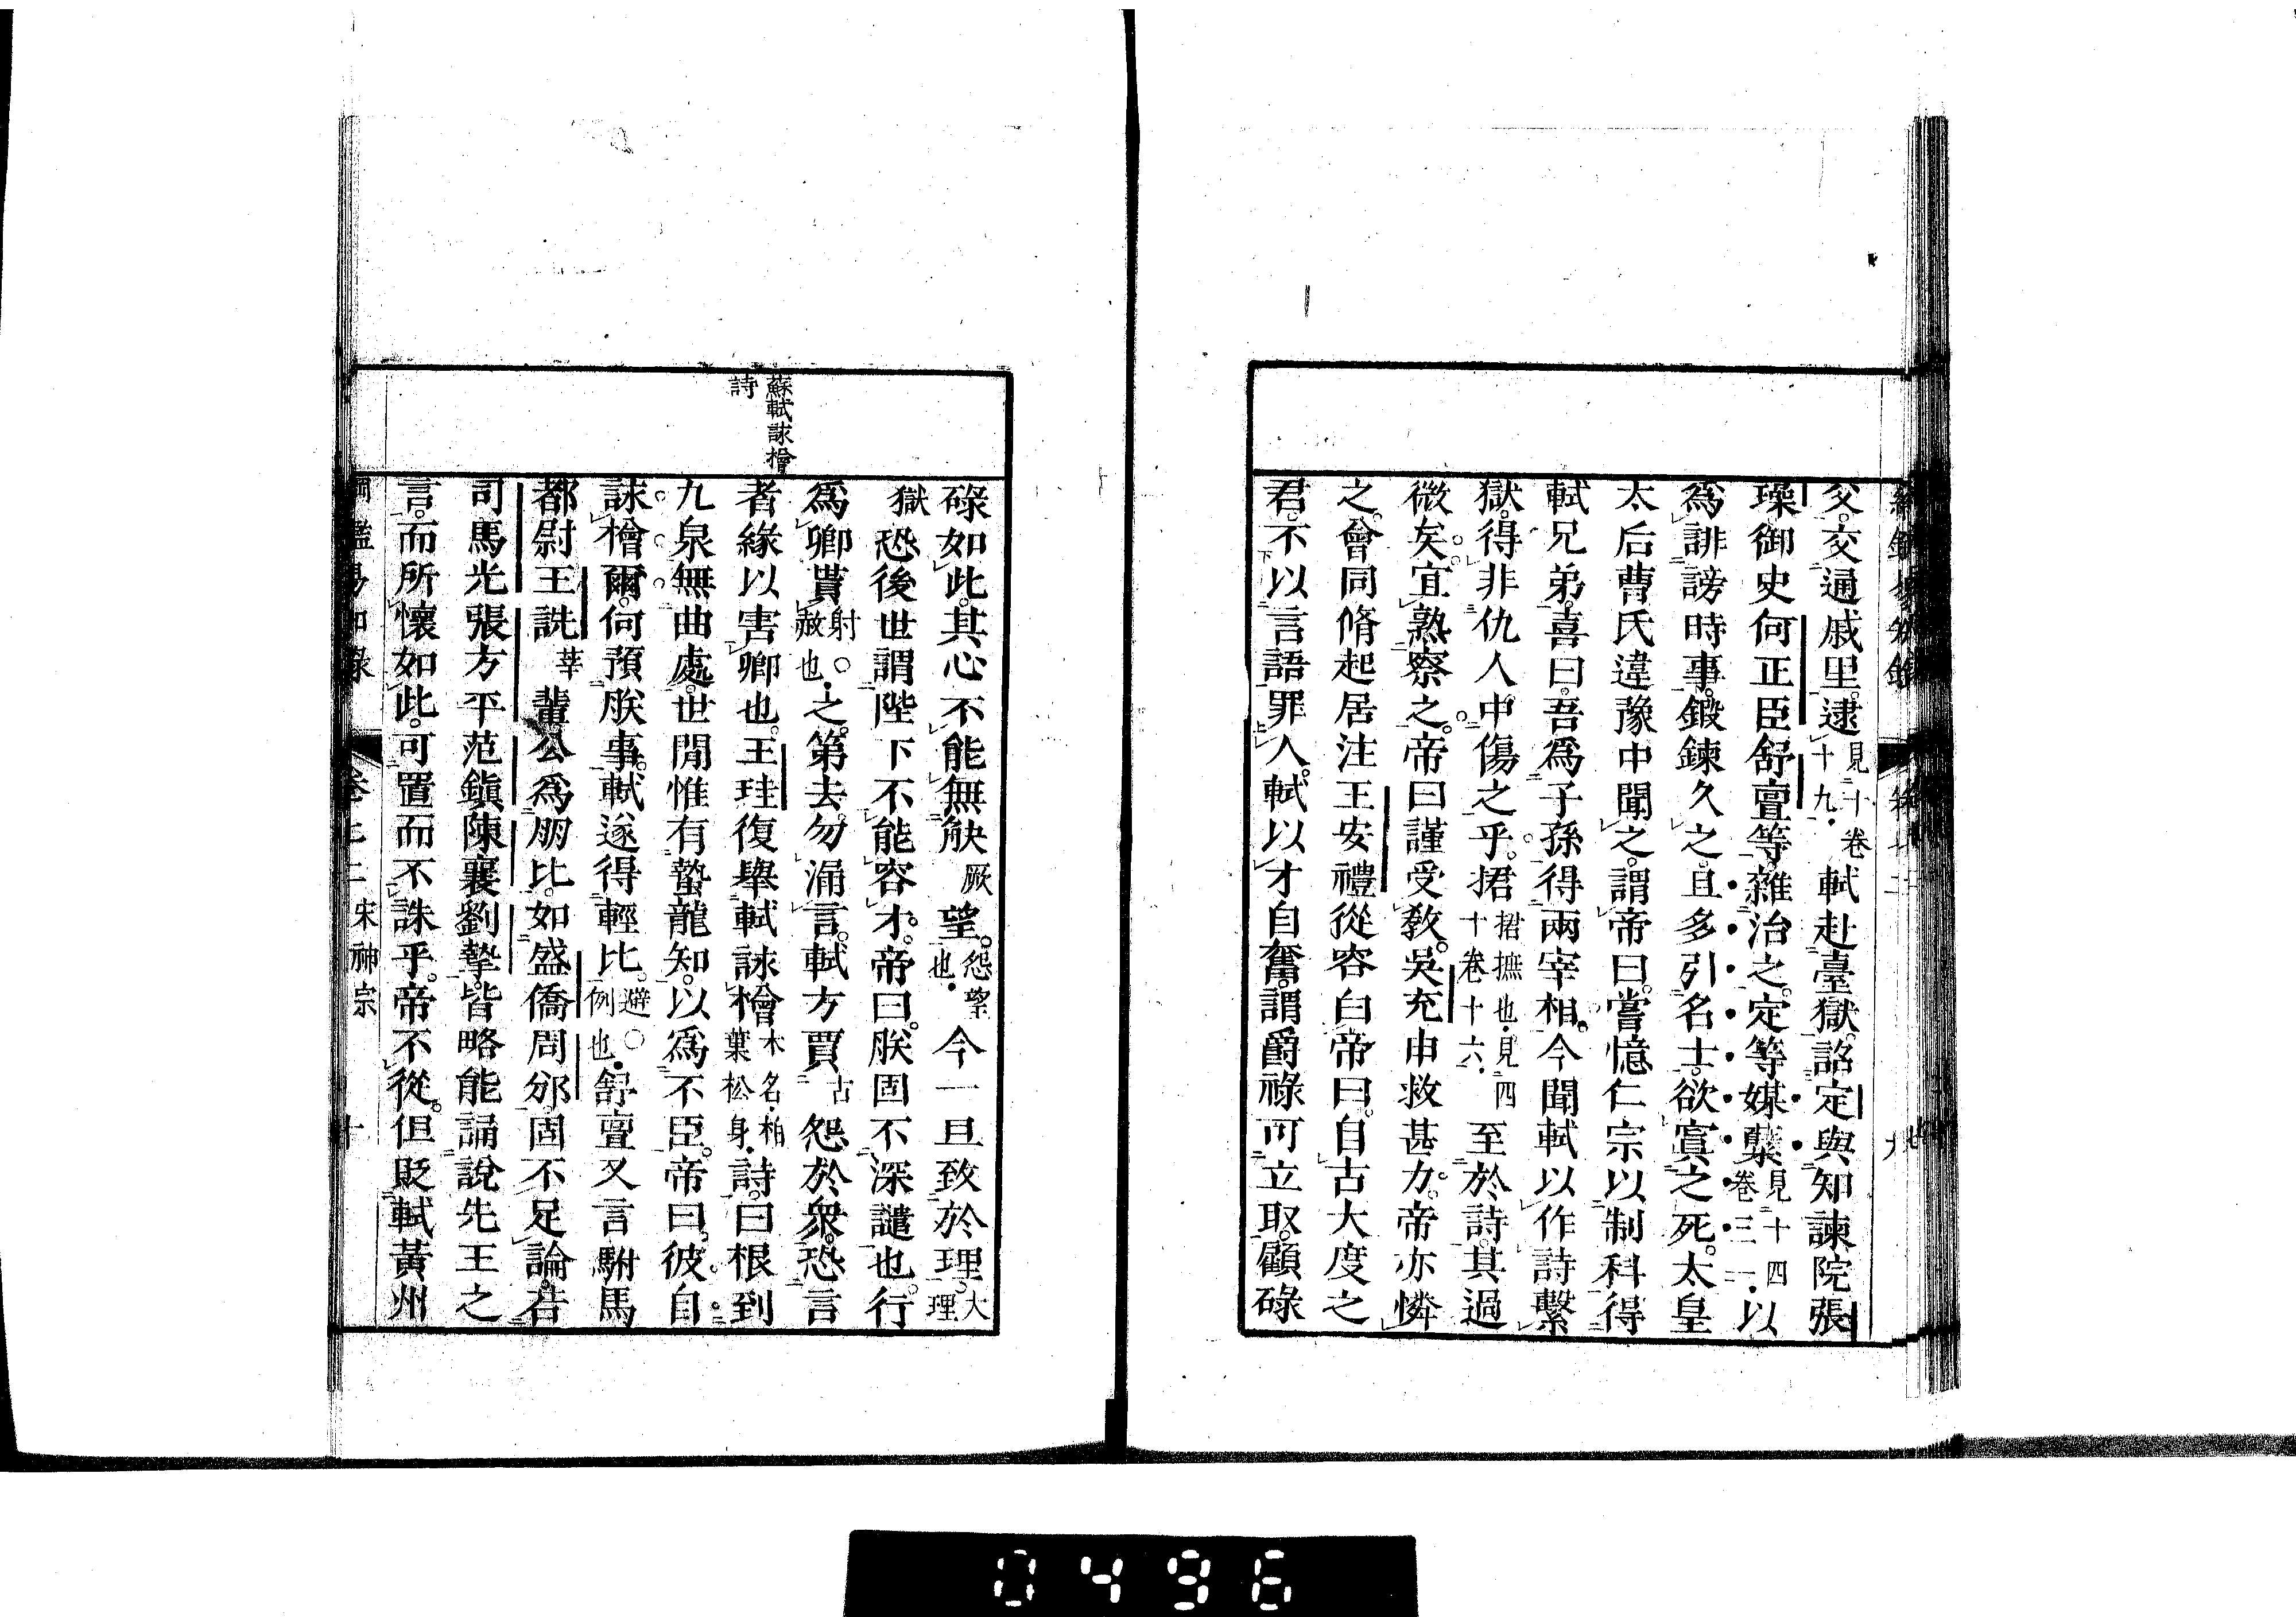 交。交通戚里。逮見二十卷十九。軾赴臺獄。詔定與知諫院張
璪御史何正臣舒亶等。雜治之。定等媒糵見十四卷三一。以
爲誹謗時事。鍛鍊久之。且多引名士。欲寘之死。太皇
太后曹氏違豫中聞之。謂帝曰。嘗憶仁宗以制科得
軾兄弟。喜曰。吾爲子孫得兩宰相。今聞軾以作詩繫
獄。得非仇人中傷之乎。捃捃摭也。見四十卷十六。至於詩。其過
微矣。宜熟察之。帝曰謹受敎。吳充申救甚力。帝亦憐
之。會同脩起居注王安禮從容白帝曰。自古大度之
君。不以言語罪人。軾以才自奮。謂爵祿可立取。顧碌
蘇軾詠檜
詩
碌如此。其心不能無觖厥望。怨望也。今一旦致於理。大理
獄恐後世謂陛下不能容才。帝曰。朕固不深譴也。行
爲卿貰射○赦也。之。第去。勿漏言。軾方賈古怨於衆。恐言
者緣以害卿也。王珪復舉軾詠檜木名。柏葉松身。詩。曰根到
九泉無曲處。世閒惟有蟄龍知。以爲不臣。帝曰。彼自
詠檜爾。何預朕事。軾遂得輕比。避○例也。舒亶又言駙馬
都尉王詵莘輩公爲朋比。如盛僑周邠。固不足論。若
司馬光張方平范鎭陳襄劉摯。皆略能誦說先王之
言。而所懷如此。可置而不誅乎。帝不從。但貶軾黃州
綱鑑易知錄 卷七二 宋神宗 十
0496